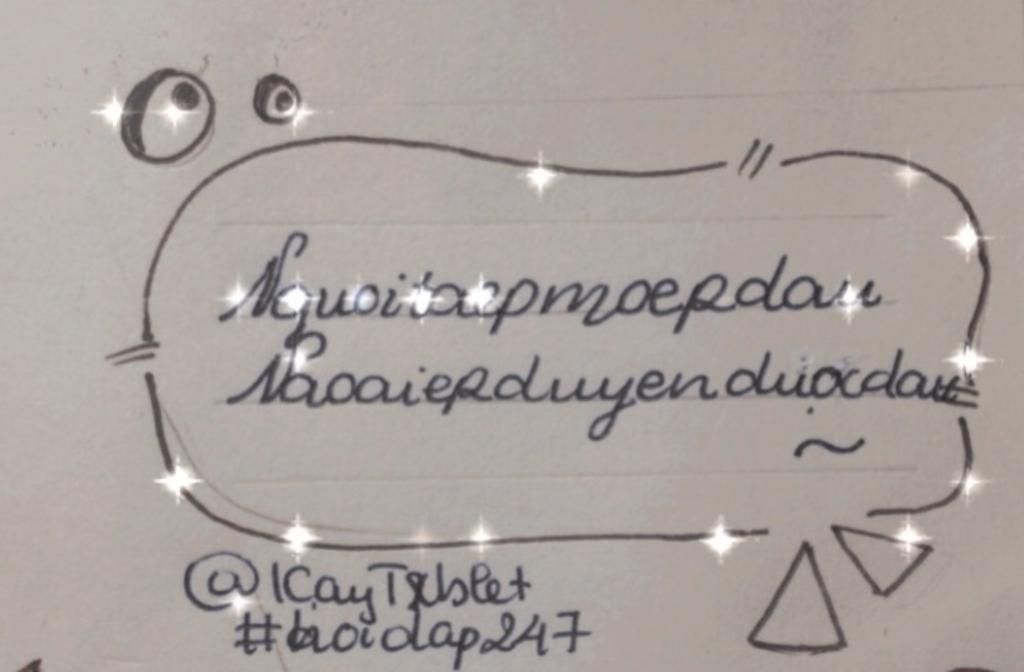 Nguoitaepmoepdau
Naoaiepduyenduiocdau
~
@KayTxblet
#hoidap247